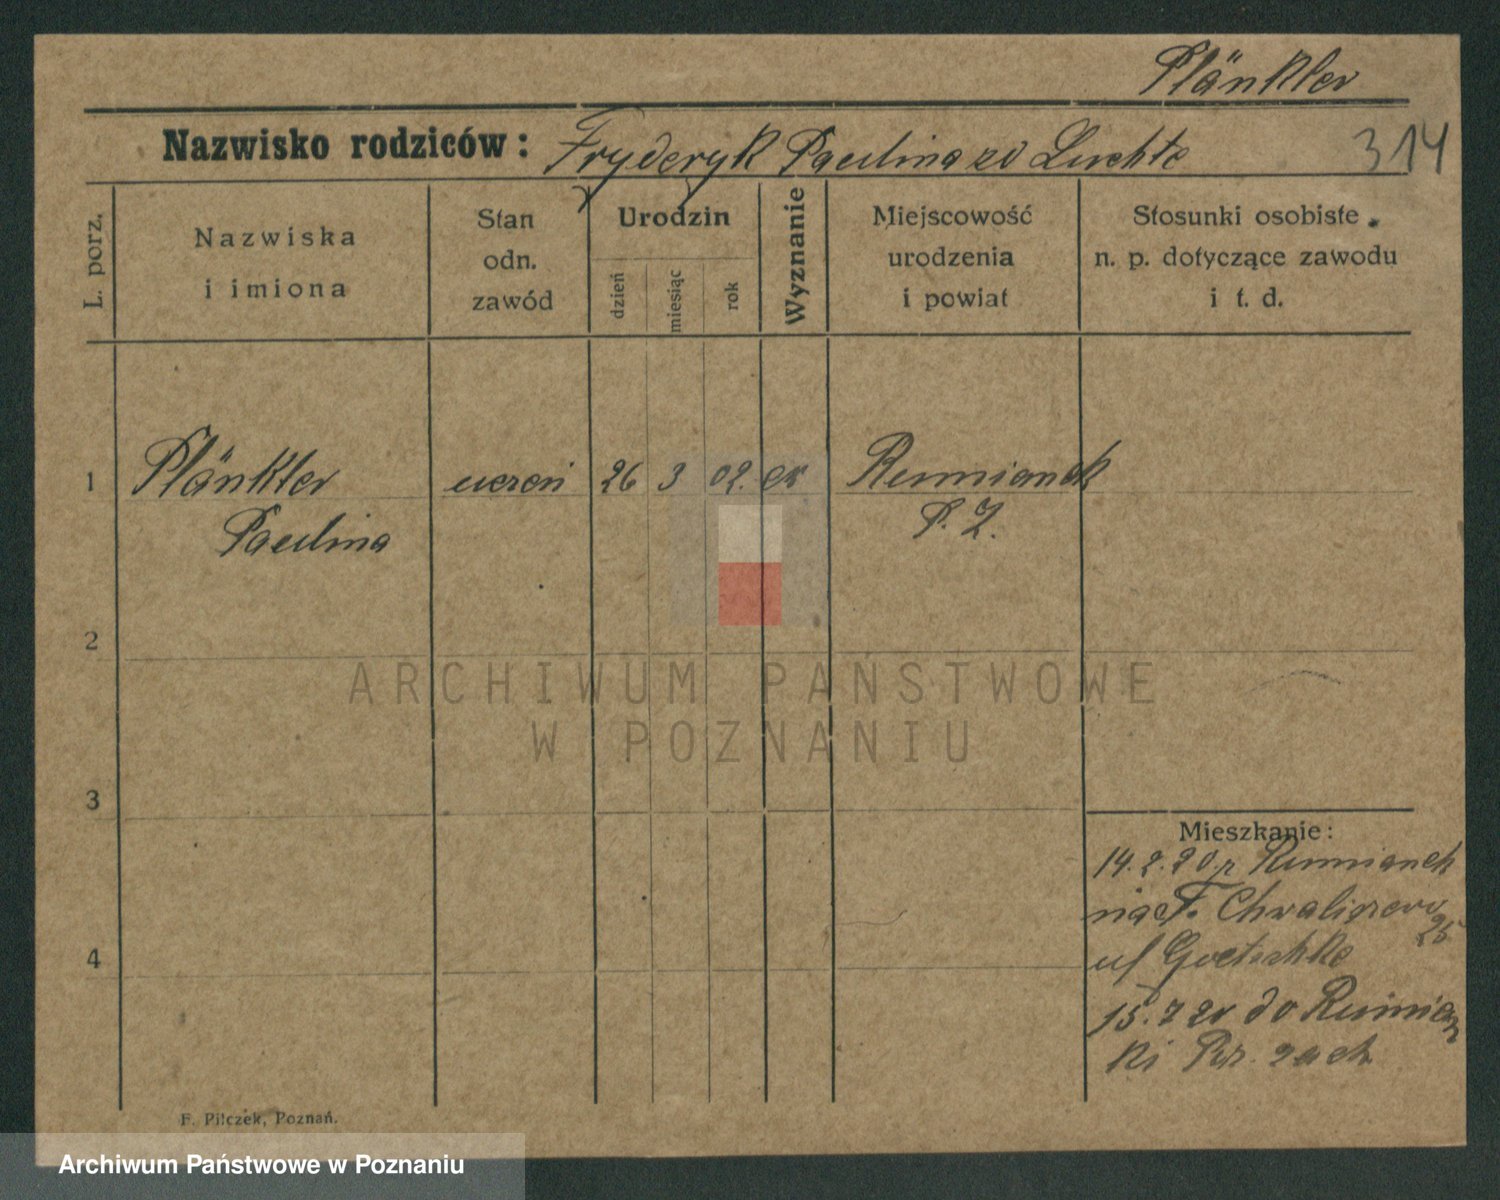 Plänkler
Nazwisko rodziców: Fryderyk Paulina zd Luchte
314
L. porz.
Nazwiska
i imiona
Stan
odn.
zawód
Urodzin
dzień
miesiąc
rok
Wyznanie
Miejscowość
urodzenia
i powiat
Stosunki osobiste
n. p. dotyczące zawodu
i t. d.
1 Plänkler uczeń 26 3 02. ew Rumianek
Paulina P. Z.
2
ARCHIWUM PAŃSTWOWE
W POZNANIU
3
Mieszkanie:
14.2.20. z Rumianek
Chwaliszewo
25
4
u/ Goetschke
15.7 20 do Rumian
ki zach
F. Pilczek, Poznań.
Archiwum Państwowe w Poznaniu